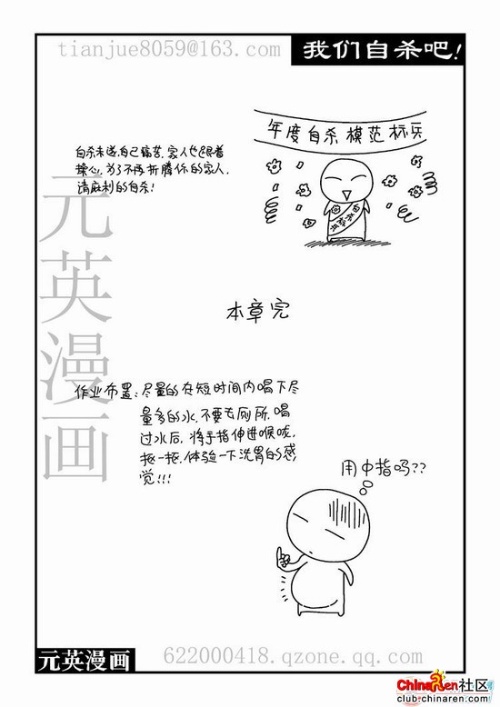 tianjue8059@163.com
我们自杀吧!
年度自杀模范标兵
自杀未遂,自己痛苦,家人也跟着
操心,为了不再折腾你的家人,
请麻利的自杀!
元英漫画
本章完
作业布置:尽量的在短时间内喝下尽
量多的水,不要去厕所,喝
过水后,将手指伸进喉咙,
抠一抠,体验一下洗胃的感
觉!!!
用中指吗??
元英漫画
622000418.qzone.qq.com
ChinaRen社区
club.chinaren.com